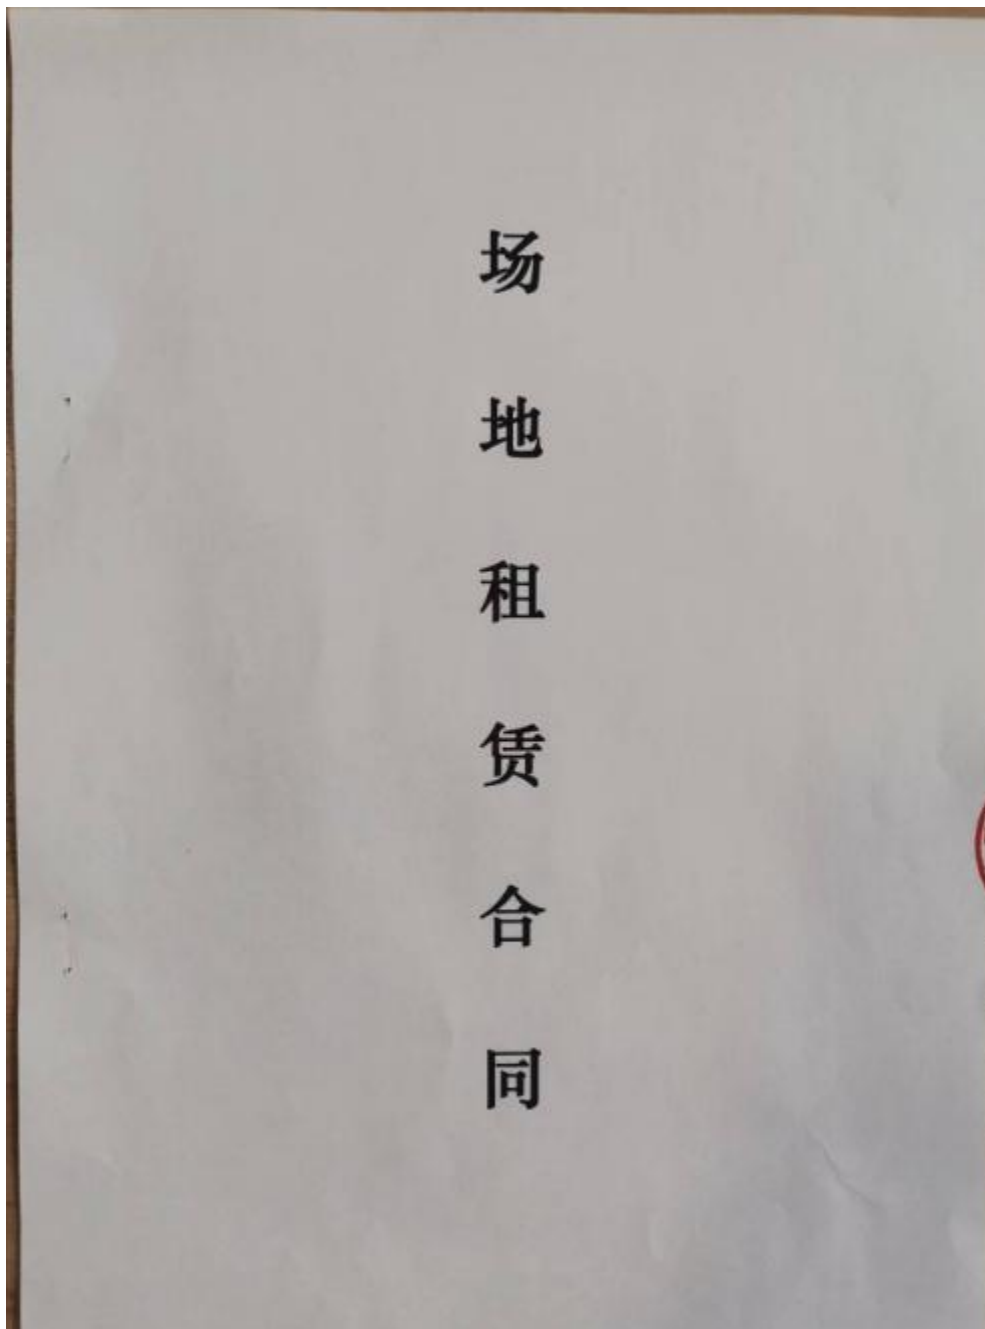 场地租赁合同